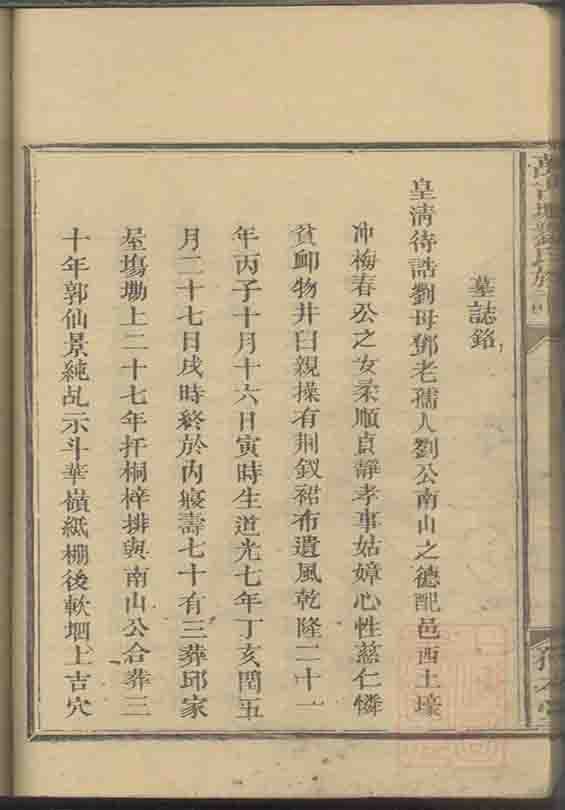 墓誌銘
皇清待誥劉母鄧老孺人劉公南山之德配邑西土壕
冲梅春公之女柔順貞靜孝事姑嫜心性慈仁憐
貧卹物井臼親操有荆釵裙布遺風乾隆二十一
年丙子十月十六日寅時生道光七年丁亥閏五
月二十七日戌時終於內寢壽七十有三葬邱家
屋塲坳上二十七年扦桐梓排與南山公合葬三
十年郭仙景純乩示斗華嶺紙棚後軟堌上吉穴